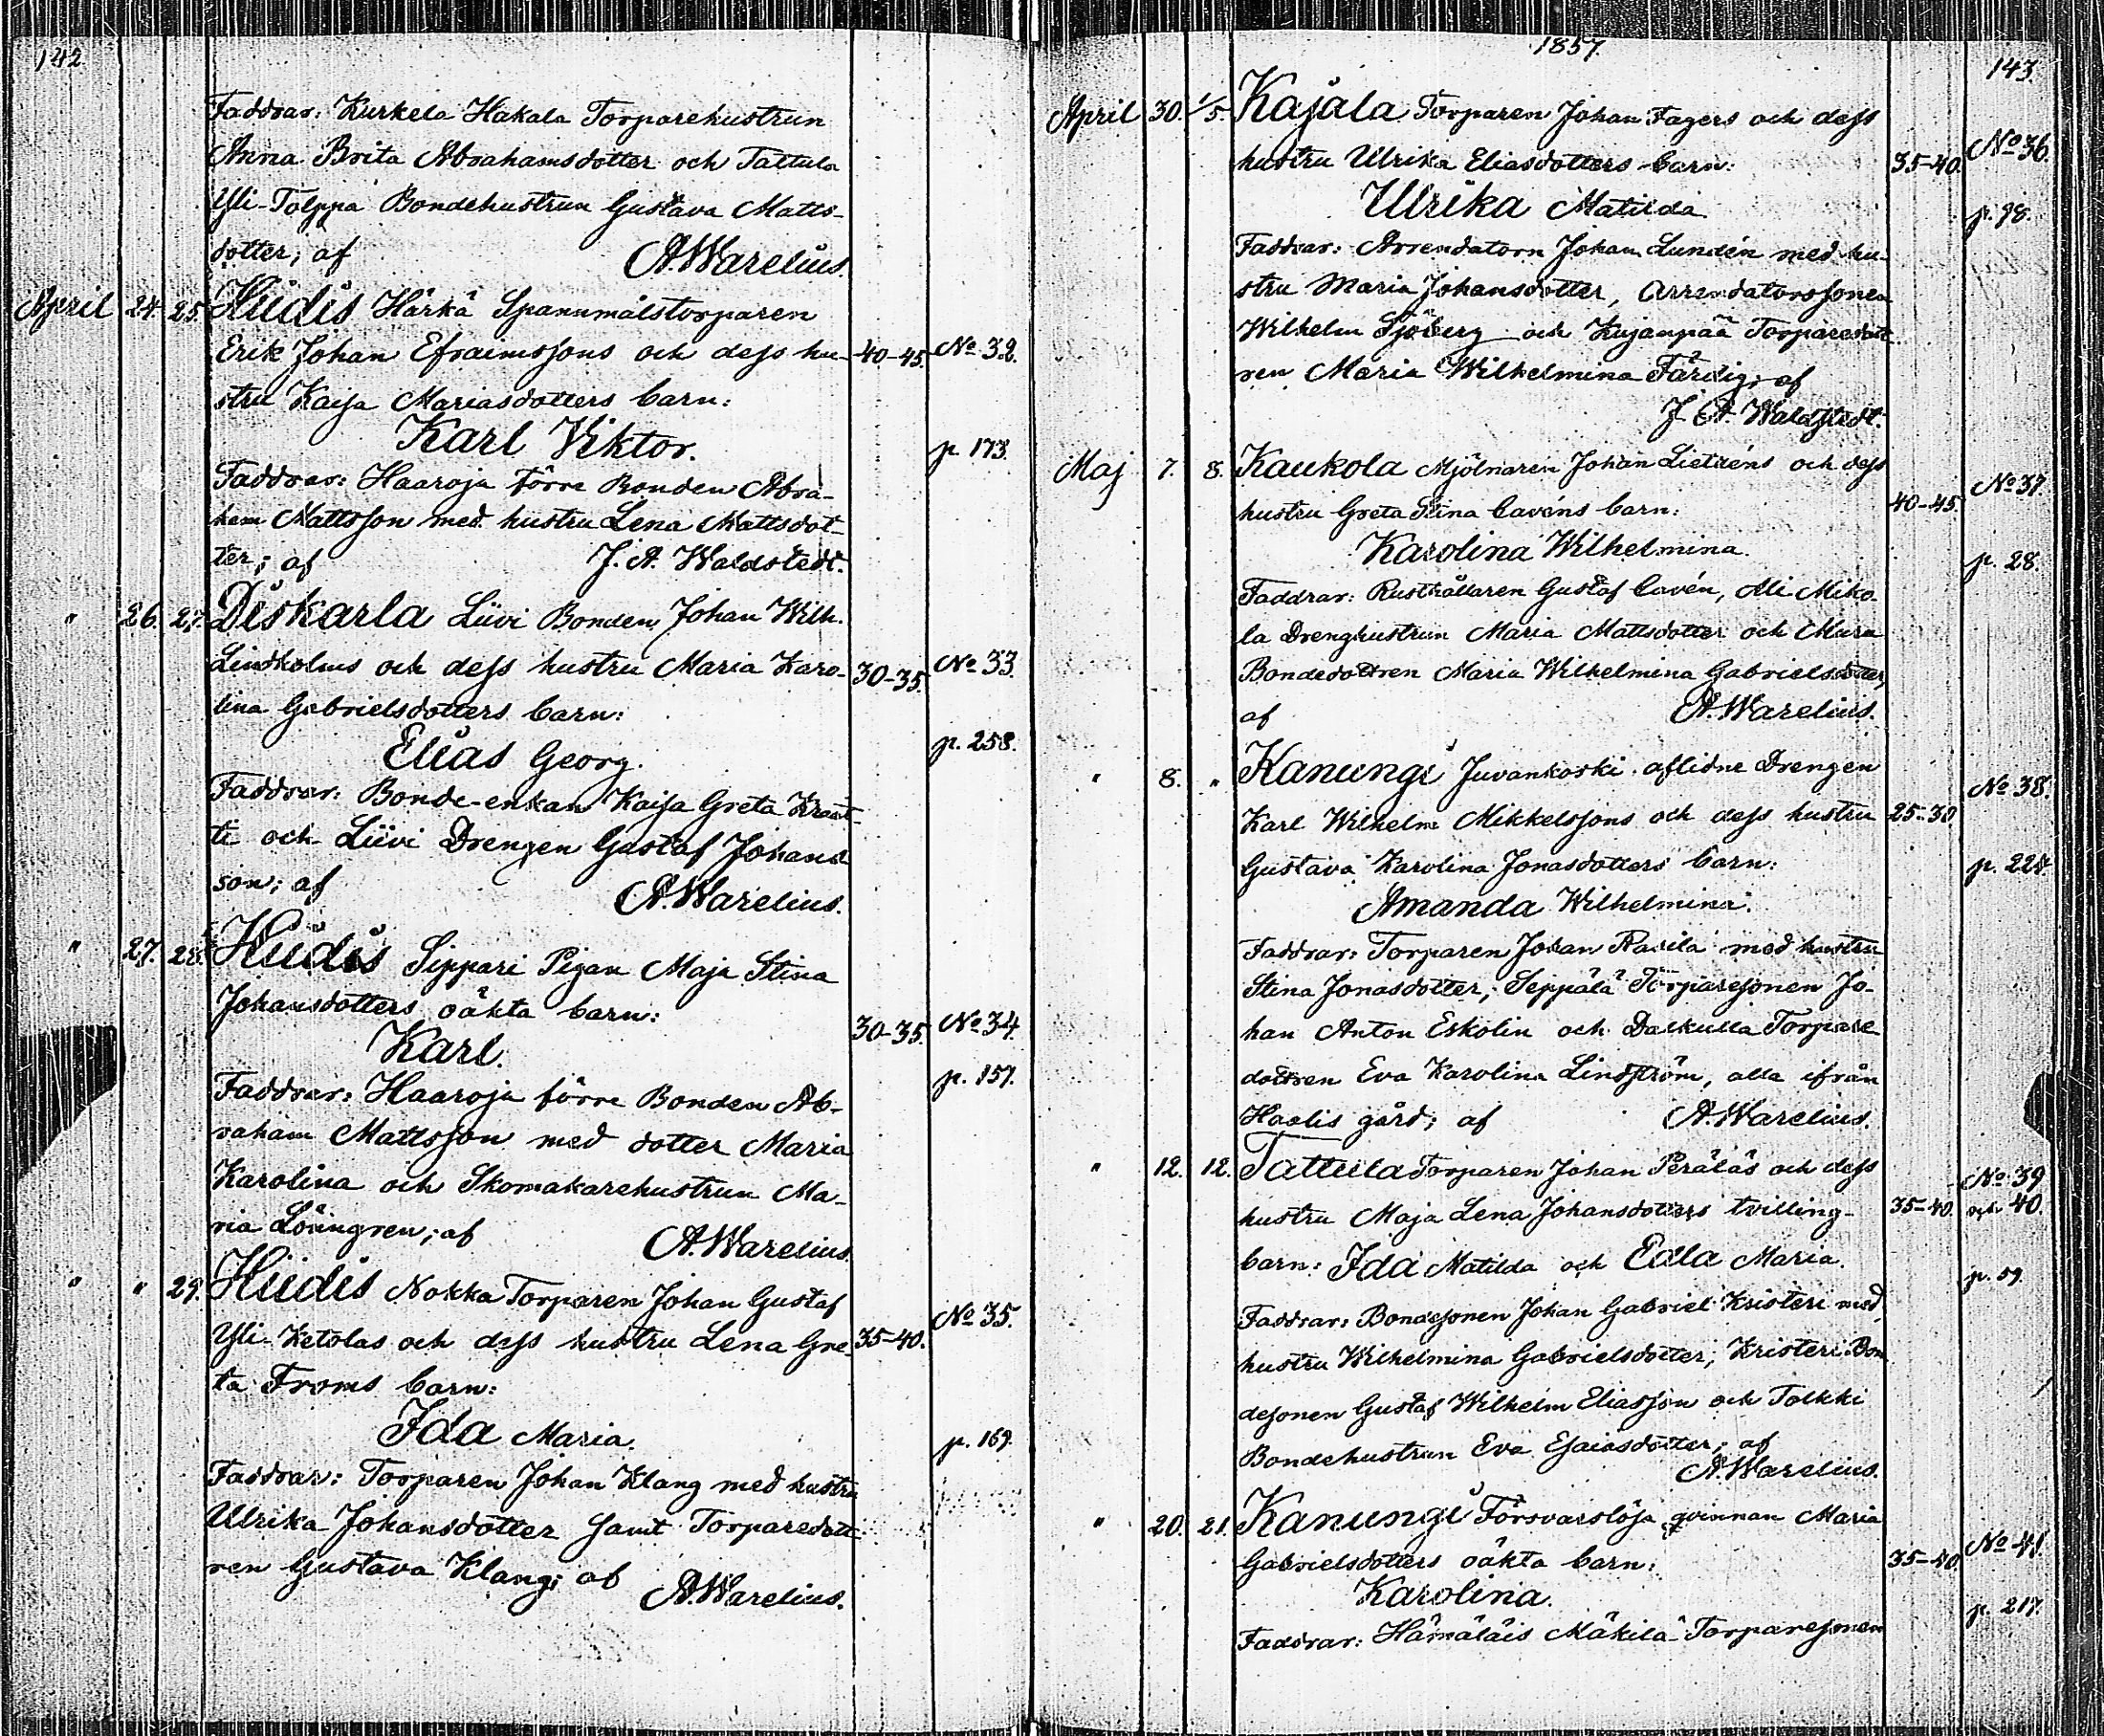 142
Faddrar: Kurkela Hakala Torparehustrun
Anna Brita Abrahamsdotter och Tattula
Yli-Tolppa Bondehustrun Gustava Matts-
dotter; af A. Warelius.
April 24. 25. Hiidis Härkä Spanmålstorparen
Erik Johan Efraimssons och dess hu- 40-45. No 32.
stru Kaisa Mariasdotters barn:
Karl Viktor. p. 173.
Faddrar: Haaroja förre Bonden Abra-
ham Mattsson med hustru Lena Mattsdot-
ter; af J. A. Waldstedt.
" 26. 27. Diskarla Liivi Bonden Johan Wilh.
Lindholms och dess hustru Maria Karo- 30-35. No 33.
lina Gabrielsdotters barn:
Elias Georg. p. 258.
Faddrar: Bonde-enkan Kaisa Greta Knaut-
ti och Liivi Drengen Gustaf Johans
son; af A. Warelius.
" 27. 28. Hiidis Sippari Pigan Maja Stina
Johansdotters oäkta barn: 30-35. No 34.
Karl. p. 157.
Faddrar: Haaroja förre Bonden Ab-
raham Mattsson med dotter Maria
Karolina och Skomakarehustrun Ma-
ria Löfngren; af A. Warelius.
" " 29. Hiidis Nokka Torparen Johan Gustaf
Yli-Ketolas och dess hustru Lena Gre- 35-40. No 35.
ta Froms barn:
Ida Maria. p. 169.
Faddrar: Torparen Johan Klang med hustru
Ulrika Johansdotter samt Torparedott-
ren Gustava Klang; af A. Warelius.
1857. 143
April 30. 1/5. Kajala Torparen Johan Fagers och dess
hustru Ulrika Eliasdotters barn: 35-40. No 36.
Ulrika Matilda p. 98.
Faddrar: Arrendatorn Johan Lundén med hu-
stru Maria Johansdotter, Arrendatorssonen
Wilhelm Sjöberg och Kujanpää Torparedott-
ren Maria Wilhelmina Färdig; af
J. A. Waldstedt.
Maj 7. 8. Kaukola Mjölnaren Johan Lietzéns och dess
hustru Greta Stina Cavéns barn: 40-45. No 37.
Karolina Wilhelmina. p. 28.
Faddrar: Rusthållaren Gustaf Cavén, Ali-Miko-
la Drenghustrun Maria Mattsdotter och Mura
Bondedottren Maria Wilhelmina Gabrielsdotter,
af A. Warelius.
" 8. " Kanungi Juvankoski aflidne Drengen
Karl Wilhelm Mikkelssons och dess hustru 25-30 No 38.
Gustava Karolina Jonasdotters barn: p. 224.
Amanda Wilhelmina.
Faddrar: Torparen Johan Rasila med hustru
Stina Jonasdotter, Seppälä Torparesonen Jo-
han Anton Eskolin och Dalkulla Torpare
dottren Eva Karolina Lindström, alla ifrån
Haalis gård; af A. Warelius.
" 12. 12. Tattula Torparen Johan Peräläs och dess No 39
hustru Maja Lena Johansdotters tvilling- 35-40. och 40.
barn: Ida Matilda och Edla Maria. p. 59.
Faddrar: Bondesonen Johan Gabriel Kristeri med
hustru Wilhelmina Gabrielsdotter, Kristeri Bon-
desonen Gustaf Wilhelm Eliasson och Tolkki
Bondehustrun Eva Esaiasdotter; af
A. Warelius.
" 20. 21. Kanungi Försvarslösa qvinnan Maria
Gabrielsdotters oäkta barn: 35-40. No 41.
Karolina. p. 217.
Faddrar: Hämäläis Mäkilä Torparesonen